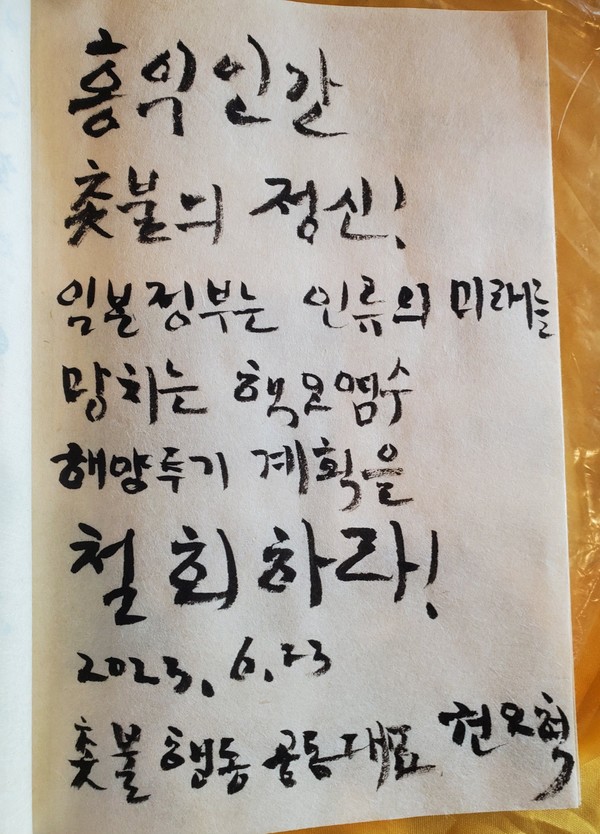 홍익인간
촛불의 정신!
일본정부는 인류의 미래를
망치는 핵오염수
해양투기 계획을
철회하라!
2023. 6. 23
촛불행동 공동대표 현오혁